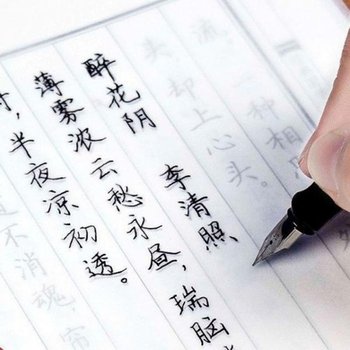 流，一种相
头却上心头。
醉花阴 李清照
薄雾浓云愁永昼，瑞脑
时，半夜凉初透。
不消魂，帘